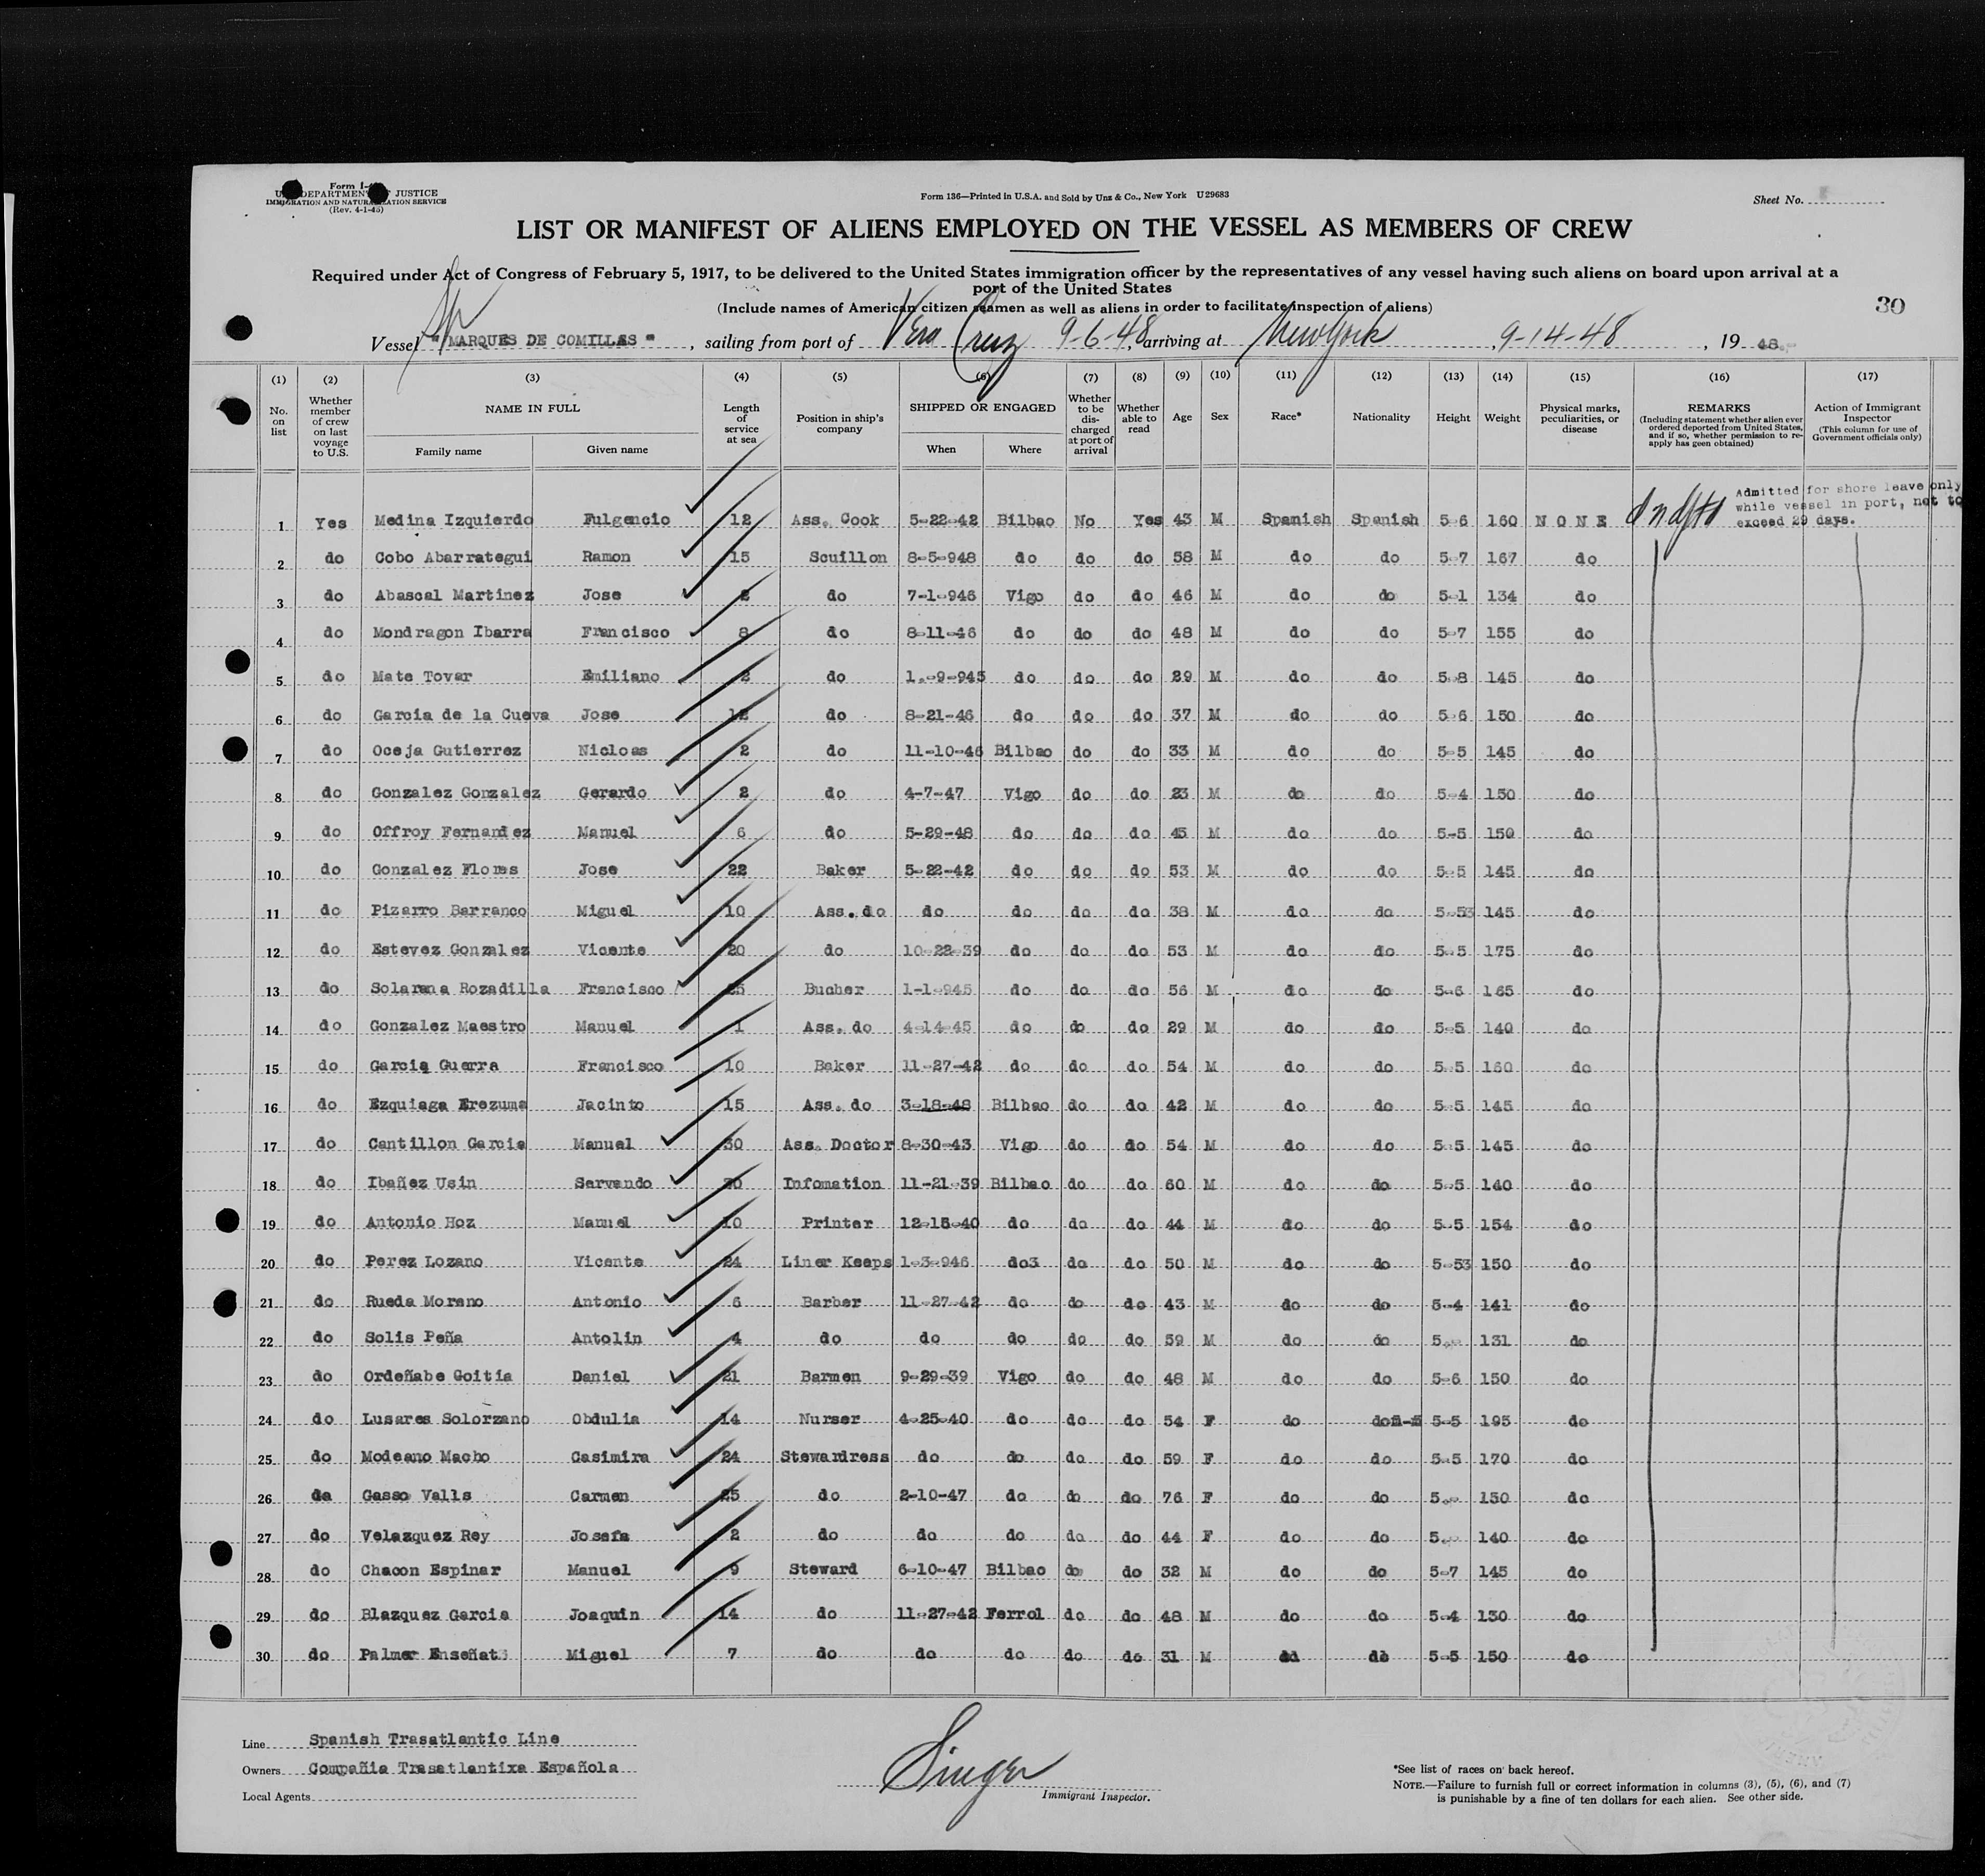 Form I-4
U. DEPARTMENT JUSTICE
IMMIGRATION AND NATURALIZATION SERVICE
(Rev. 4-1-45)
Form 136—Printed in U.S.A. and Sold by Unz & Co., New York U29683
Sheet No.
LIST OR MANIFEST OF ALIENS EMPLOYED ON THE VESSEL AS MEMBERS OF CREW
Required under Act of Congress of February 5, 1917, to be delivered to the United States immigration officer by the representatives of any vessel having such aliens on board upon arrival at a
port of the United States
(Include names of American citizen seamen as well as aliens in order to facilitate inspection of aliens)
30
Sp
Vessel "MARQUES DE COMILLAS", sailing from port of Vera Cruz 9-6-48, arriving at New York, 9-14-48, 19 48.
(1) (2) (3) (4) (5) (6) (7) (8) (9) (10) (11) (12) (13) (14) (15) (16) (17)
No. on list Whether member of crew on last voyage to U.S. NAME IN FULL Family name Given name Length of service at sea Position in ship's company SHIPPED OR ENGAGED When Where Whether to be discharged at port of arrival Whether able to read Age Sex Race* Nationality Height Weight Physical marks, peculiarities, or disease REMARKS (Including statement whether alien ever ordered deported from United States, and if so, whether permission to re-apply has geen obtained) Action of Immigrant Inspector (This column for use of Government officials only)
Admitted for shore leave only
while vessel in port, not to
exceed 29 days.
1 Yes Medina Izquierdo Fulgencio 12 Ass. Cook 5-22-42 Bilbao No Yes 43 M Spanish Spanish 5-6 160 N O N E
2 do Cobo Abarrategui Ramon 15 Scuillon 8-5-948 do do do 58 M do do 5-7 167 do
3 do Abascal Martinez Jose 2 do 7-1-946 Vigo do do 46 M do do 5-1 134 do
4 do Mondragon Ibarra Francisco 8 do 8-11-46 do do do 48 M do do 5-7 155 do
5 do Mate Tovar Emiliano 2 do 1.-9-945 do do do 29 M do do 5-8 145 do
6 do Garcia de la Cueva Jose 12 do 8-21-46 do do do 37 M do do 5-6 150 do
7 do Oceja Gutierrez Nicloas 2 do 11-10-46 Bilbao do do 33 M do do 5-5 145 do
8 do Gonzalez Gonzalez Gerardo 2 do 4-7-47 Vigo do do 23 M do do 5-4 150 do
9 do Offroy Fernandez Manuel 6 do 5-29-48 do do do 45 M do do 5-5 150 do
10 do Gonzalez Flores Jose 22 Baker 5-22-42 do do do 53 M do do 5-5 145 do
11 do Pizarro Barranco Miguel 10 Ass. do do do do do 38 M do do 5-53 145 do
12 do Estevez Gonzalez Vicente 20 do 10-22-39 do do do 53 M do do 5-5 175 do
13 do Solarana Rozadilla Francisco 25 Bucher 1-1-945 do do do 56 M do do 5-6 165 do
14 do Gonzalez Maestro Manuel 1 Ass. do 4-14-45 do do do 29 M do do 5-5 140 do
15 do Garcia Guerra Francisco 10 Baker 11-27-42 do do do 54 M do do 5-5 160 do
16 do Ezquiaga Erezuma Jacinto 15 Ass. do 3-18-48 Bilbao do do 42 M do do 5-5 145 do
17 do Cantillon Garcia Manuel 30 Ass. Doctor 8-30-43 Vigo do do 54 M do do 5-5 145 do
18 do Ibañez Usin Servando 30 Infomation 11-21-39 Bilbao do do 60 M do do 5-5 140 do
19 do Antonio Hoz Manuel 10 Printer 12-15-40 do do do 44 M do do 5-5 154 do
20 do Perez Lozano Vicente 24 Liner Keeps 1-3-946 do3 do do 50 M do do 5-53 150 do
21 do Rueda Moreno Antonio 6 Barber 11-27-42 do do do 43 M do do 5-4 141 do
22 do Solis Peña Antolin 4 do do do do do 59 M do do 5 131 do
23 do Ordeñabe Goitia Daniel 21 Barmen 9-29-39 Vigo do do 48 M do do 5-6 150 do
24 do Lusares Solorzano Obdulia 14 Nurser 4-25-40 do do do 54 F do do 5-5 195 do
25 do Modeano Macho Casimira 24 Stewardress do do do do 59 F do do 5-5 170 do
26 do Gasso Valls Carmen 25 do 2-10-47 do do do 76 F do do 5 130 do
27 do Velazquez Rey Josefa 2 do do do do do 44 F do do 5 140 do
28 do Chacon Espinar Manuel 9 Steward 6-10-47 Bilbao do do 32 M do do 5-7 145 do
29 do Blazquez Garcia Joaquin 14 do 11-27-42 Ferrol do do 48 M do do 5-4 130 do
30 do Palmer Enseñat Miguel 7 do do do do do 31 M do do 5-5 150 do
Line Spanish Trasatlantic Line
Owners Compañia Trasatlantixa Española
Local Agents
Singer
Immigrant Inspector.
*See list of races on back hereof.
NOTE.—Failure to furnish full or correct information in columns (3), (5), (6), and (7)
is punishable by a fine of ten dollars for each alien. See other side.